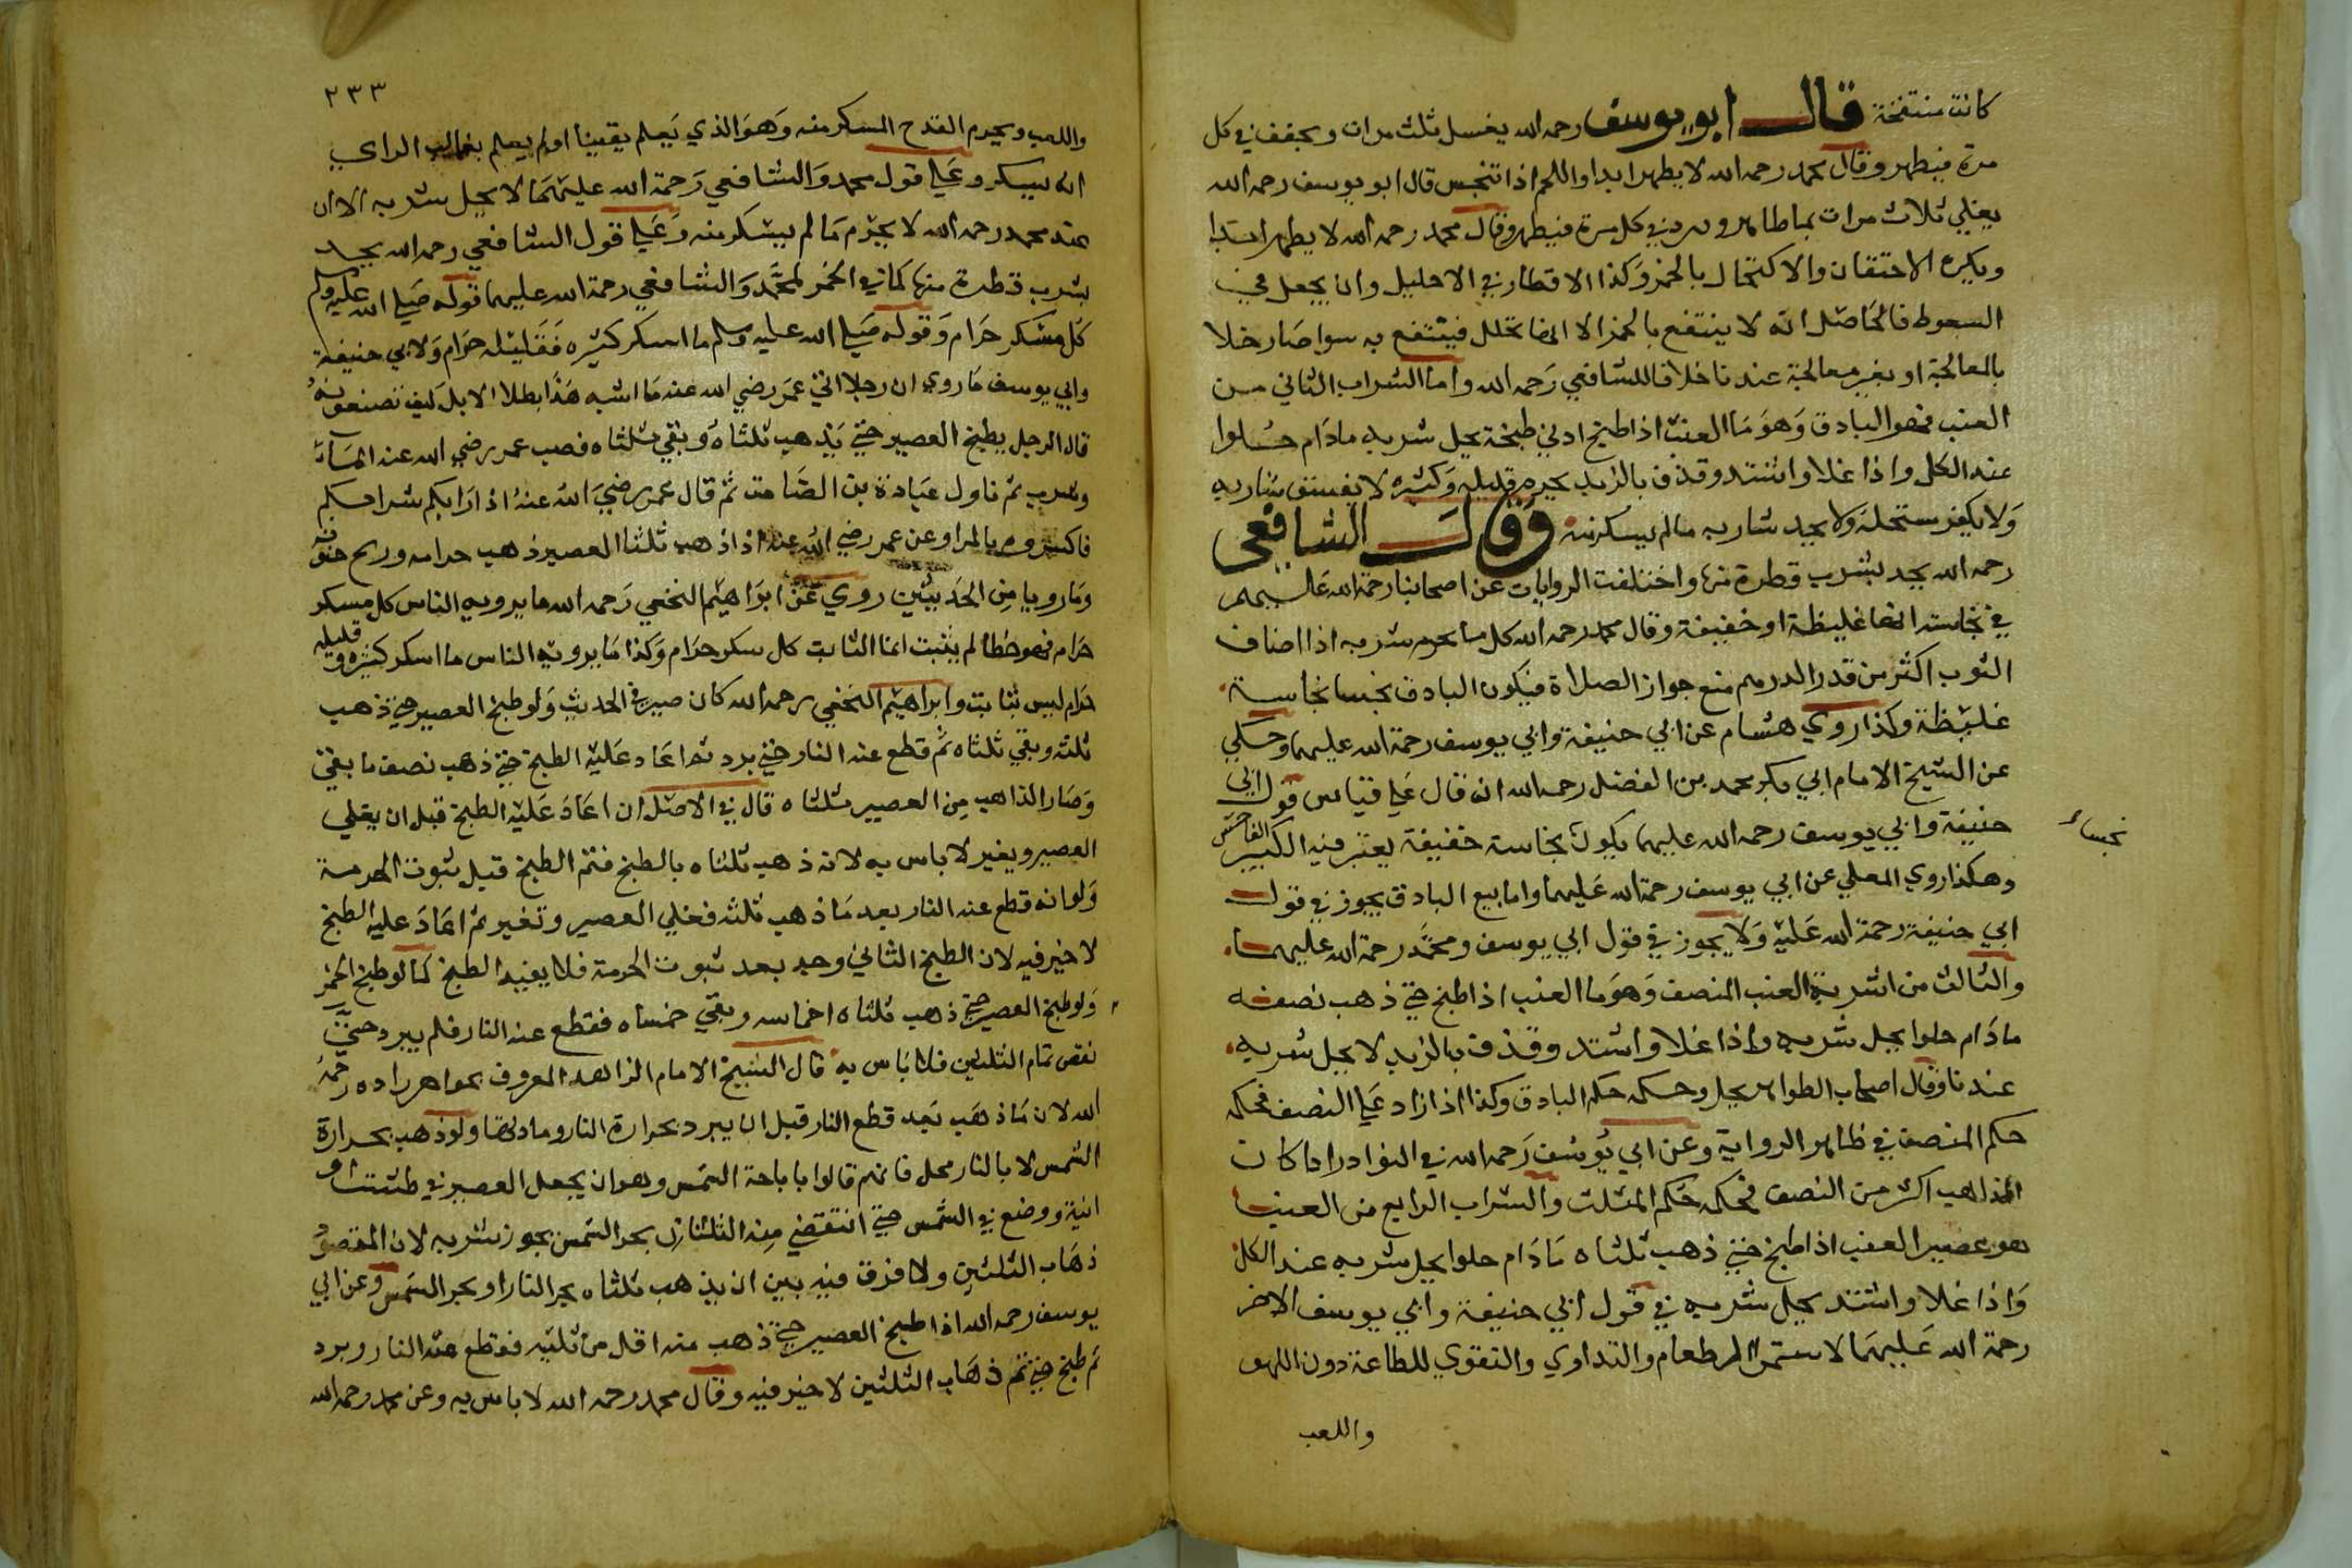 كانت منتفخة قال ابو يوسف رحمه الله يغسل ثلث مرات ويجفف في كل
مرة فيطهر وقال محمد رحمه الله لا يطهر ابدا واللحم اذا تنجس قال ابو يوسف رحمه الله
يغلي ثلاث مرات بما طاهر ويبرد في كل مرة فيطهر وقال محمد رحمه الله لا يطهر ابدا
ويكره الاحتقان والاكتحال بالخمر وكذا الاقطار في الاحليل وان يجعل في
السعوط فالحاصل انه لا ينتفع بالخمر الا انها تخلل فينتفع به سوا صار خلا
بالمعالجة او بغير معالجة عندنا خلافا للشافعي رحمه الله واما الشراب الثاني من
العنب فهو البادق وهو ما العنب اذا طبخ ادني طبخة يحل شربه مادام حلوا
عند الكل واذا غلا واشتد وقذف بالزبد يحرم قليله وكثيره لا يفسق شاربه
ولا يكفر مستحله ولا يحد شاربه مالم يسكر منه وقال الشافعي
رحمه الله يحد بشرب قطرة منها واختلفت الروايات عن اصحابنا رحمة الله عليهم
في نجاسته انها غليظة او خفيفة وقال محمد رحمه الله كل ما يحرم شربه اذا اصاف
الثوب اكثر من قدر الدرهم منع جواز الصلاة فيكون البادق نجسا نجاسة
غليظة وكذا روي هشام عن ابي حنيفة وابي يوسف رحمة الله عليهما وحكي
عن الشيخ الامام ابي بكر محمد بن الفضل رحمه الله انه قال علي قياس قول ابي
حنيفة وابي يوسف رحمه الله عليهما يكون نجاسة خفيفة يعتبر فيه الكبير الفاحش
نجسا
وهكذا روي المعلي عن ابي يوسف رحمة الله عليهما واما بيع البادق يجوز في قول
ابي حنيفة رحمة الله عليه ولا يجوز في قول ابي يوسف ومحمد رحمة الله عليهما
والثالث من اشربة العنب المنصف وهو ما العنب اذا طبخ حتي ذهب نصفه
مادام حلوا يحل شربه واذا غلا واشتد وقذف بالزبد لا يحل شربه
عندنا وقال اصحاب الظواهر يحل وحكمه حكم البادق وكذا اذا زاد علي النصف فحكمه
حكم المنصف في ظاهر الرواية وعن ابي يوسف رحمه الله في النوادر اذا كان
الذاهب اكثر من النصف فحكمه حكم المثلث والشراب الرابع من العنب
هو عصير العنب اذا طبخ حتي ذهب ثلثاه مادام حلوا يحل شربه عند الكل
واذا غلا واشتد يحل شربه في قول ابي حنيفة وابي يوسف الاخر
رحمة الله عليهما لاستمرا الطعام والتداوي والتقوي للطاعة دون اللهو
واللعب
٢٣٣
واللعب ويحرم القدح المسكر منه وهو الذي يعلم يقينا او لم يعلم بغالب الراي
انه يسكر وعلي قول محمد والشافعي رحمة الله عليهما لا يحل شربه الا ان
عند محمد رحمه الله لا يحرم مالم يسكر منه وعلي قول الشافعي رحمه الله يحد
بشرب قطرة منها كما في الخمر لمحمد والشافعي رحمة الله عليهما قوله صلي الله عليه وسلم
كل مسكر حرام وقوله صلي الله عليه وسلم ما اسكر كثيره فقليله حرام ولابي حنيفة
وابي يوسف ما روي ان رجلا اتي عمر رضي الله عنه ما اشبه هذا بطلا الابل كيف تصنعونه
قال الرجل يطبخ العصير حتي يذهب ثلثاه وبقي ثلثاه فصب عمر رضي الله عنه الماء
وشرب ثم ناول عبادة بن الصامت ثم قال عمر رضي الله عنه اذا رابكم شرابكم
فاكسروه بالماء وعن عمر رضي الله عنه اذا ذهب ثلثا العصير ذهب حرامه وريح جنونه
وما رويا من الحديثين روي عن ابراهيم النخعي رحمه الله ما يرويه الناس كل مسكر
حرام فهو خطا لم يثبت انما الثابت كل سكر حرام وكذا ما يرويه الناس ما اسكر كثيره فقليله
حرام ليس بثابت وابراهيم النخعي رحمه الله كان صيرفي الحديث ولو طبخ العصير حتي ذهب
ثلثه وبقي ثلثاه ثم قطع عنه النار حتي برد ثم اعاد عليه الطبخ حتي ذهب نصف ما بقي
وصار الذاهب من العصير ثلثاه قال في الاصل ان اعاد عليه الطبخ قبل ان يغلي
العصير ويغير لا باس به لانه ذهب ثلثاه بالطبخ فتم الطبخ قبل ثبوت الحرمة
ولو انه قطع عنه النار بعد ما ذهب ثلثه فغلي العصير وتغير ثم اعاد عليه الطبخ
لا خير فيه لان الطبخ الثاني وجد بعد ثبوت الحرمة فلا يفيد الطبخ كما لو طبخ الخمر
ولو طبخ العصير حتي ذهب ثلثاه اخماسه وبقي خمساه فقطع عنه النار فلم يبرد حتي
نقص تمام الثلثين فلا باس به قال الشيخ الامام الزاهد المعروف بخواهر زاده رحمة
الله لان ما ذهب بعد قطع النار قبل ان يبرد بحرارة النار وما دلها ولو ذهب بحرارة
الشمس لا بالنار محل فانهم قالوا باباحة الشمس وهو ان يجعل العصير في طشت او
انية ووضع في الشمس حتي انتقضي منه الثلثان بحر الشمس يجوز شربه لان المقصود
ذهاب الثلثين ولا فرق فيه بين ان يذهب ثلثاه بحر النار او بحر الشمس وعن ابي
يوسف رحمه الله اذا طبخ العصير حتي ذهب منه اقل من ثلثيه فقطع عنه النار وبرد
ثم طبخ حتي تم ذهاب الثلثين لا خير فيه وقال محمد رحمه الله لا باس به وعن محمد رحمه الله